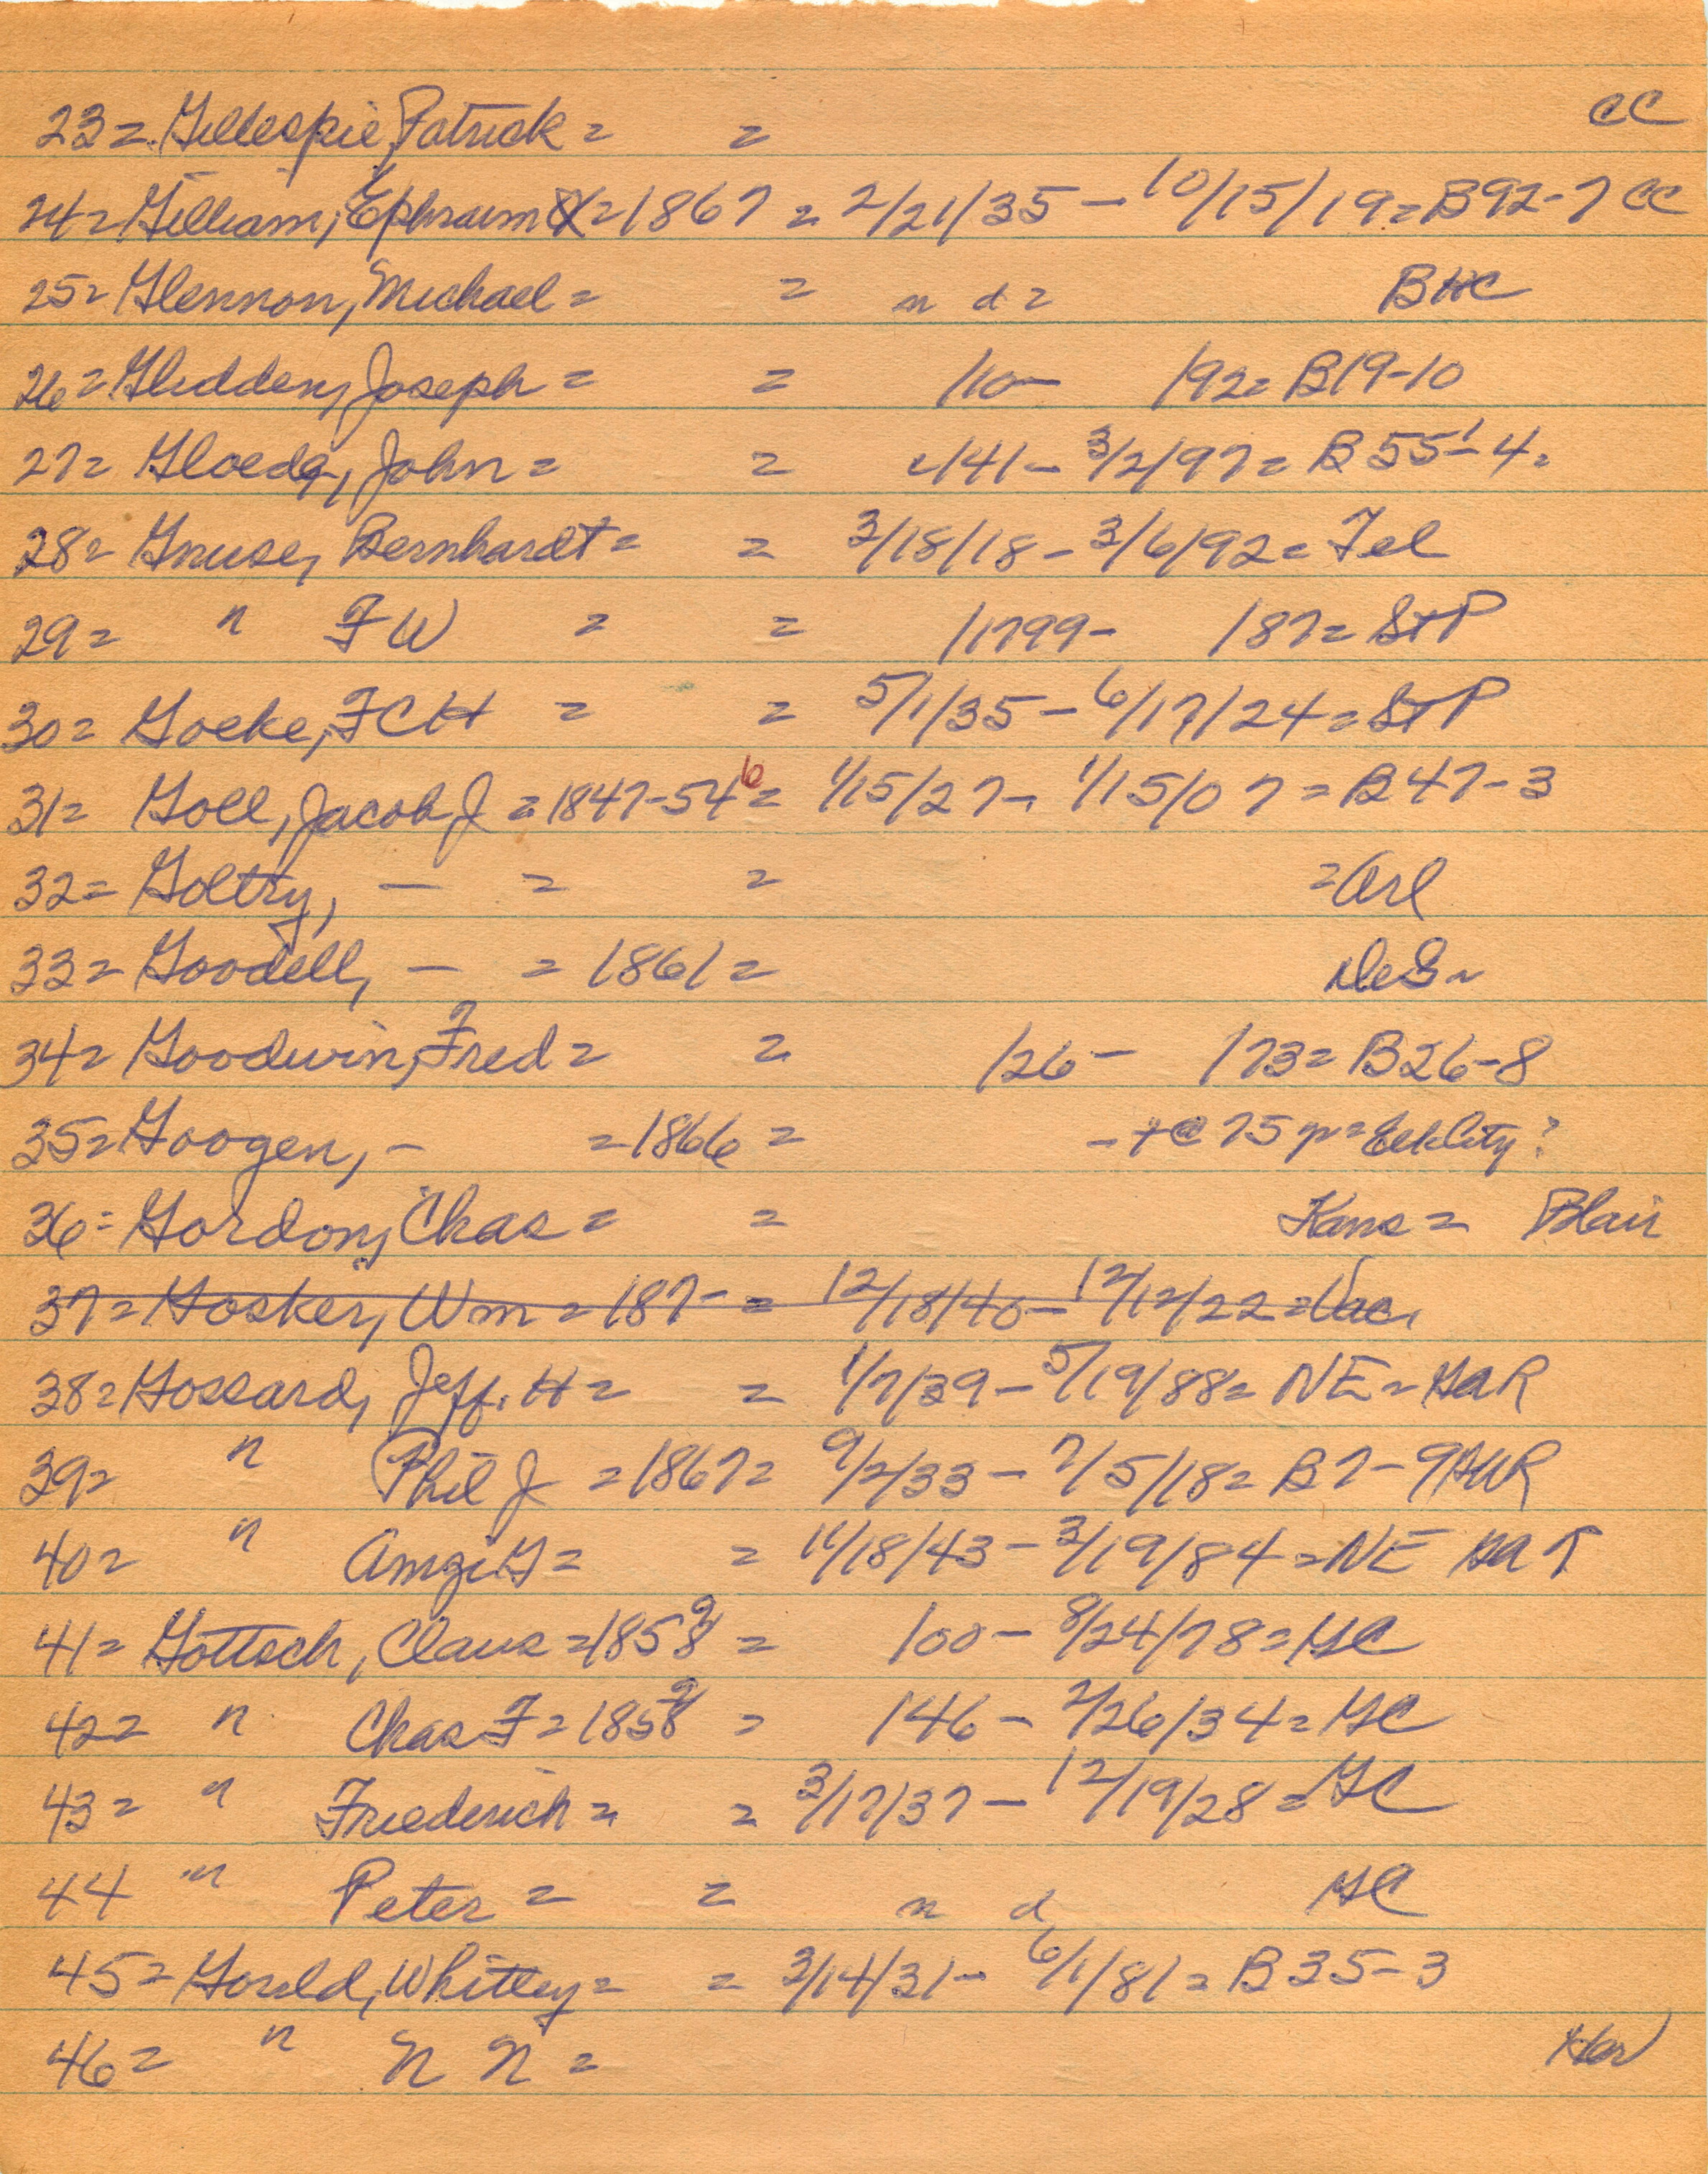 23= Gillespie, Patrick = = CC
24= Gilliam, Ephraim = 1867 = 2/21/35 - 10/15/19 = B92-7 CC
25= Glennon, Michael = = n d = BHC
26= Glidden, Joseph = = /10- /92 = B19-10
27= Gloede, John = = /41 - 3/2/97 = B 55-4
28= Gnuse, Bernhardt = = 3/18/18 - 3/6/92 = Tel
29= " FW = = /1799 - /87 = StP
30= Goeke, FCH = = 5/1/35 - 6/17/24 = StP
31= Goll, Jacob J = 1847-54 6 = 1/15/27 - 1/15/07 = B47-3
32= Goltry, — = = = Arl
33= Goodell, — = 1861 = DeS
34= Goodwin, Fred = = /26 - /73 = B26-8
35= Googen, — = 1866 = - + @ 75 yr = Elk City?
36= Gordon, Chas = = Kans = Blair
37= Gosker, Wm = 187- = 12/18/40 - 12/12/22 = Vac.
38= Gossard, Jeff. H = = 1/7/39 - 5/19/88 = NE = GAR
39= " Phil J = 1867 = 9/2/33 - 7/5/18 = B7-9 GAR
40= " Amzi G = = 11/18/43 - 3/19/84 = NE GAR
41= Gottsch, Claus = 1858 9 = /00 - 8/24/78 = GC
42= " Chas F = 1858 9 = /46 - 2/26/34 = GC
43= " Friederich = = 3/17/37 - 12/19/28 = GC
44 " Peter = = n d GC
45= Gould, Whitley = = 3/14/31 - 6/1/81 = B35-3
46= " N N = Her